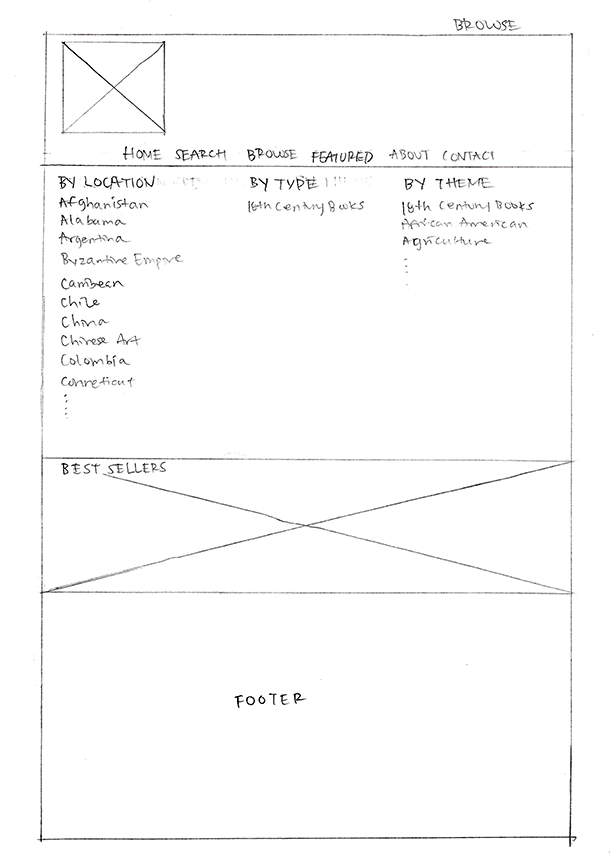 BROWSE
HOME SEARCH BROWSE FEATURED ABOUT CONTACT
BY LOCATION
Afghanistan
Alabama
Argentina
Byzantine Empire
Carribean
Chile
China
Chinese Art
Colombia
Conneticut
BY TYPE
16th Century Books
BY THEME
18th Century Books
African American
Agriculture
BEST SELLERS
FOOTER